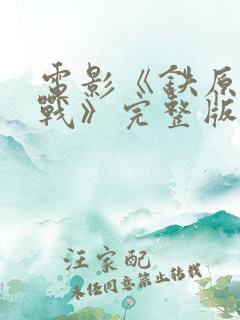 电影《铁原
战》完整版
汪家配
未经同意禁止转载